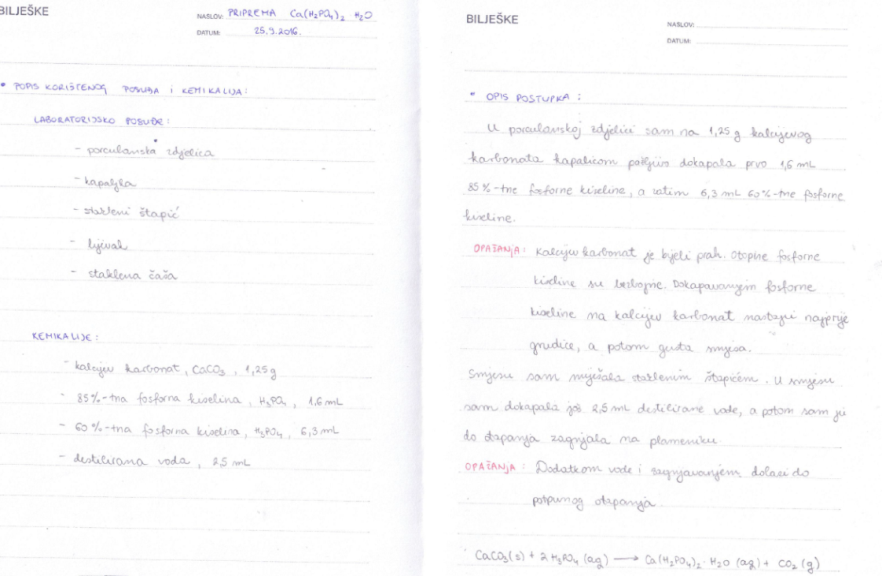 BILJEŠKE
NASLOV: PRIPREMA Ca(H₂PO₄)₂ H₂O
DATUM: 25.9.2016.
* POPIS KORIŠTENOG POSUĐA I KEMIKALIJA:
LABORATORIJSKO POSUĐE:
- porculanska zdjelica
- kapaljka
- stakleni štapić
- lijevak
- staklena čaša
KEMIKALIJE:
- kalcijev karbonat, CaCO₃, 1,25g
- 85%-tna fosforna kiselina, H₃PO₄, 1,6 mL
- 60%-tna fosforna kiselina, H₃PO₄, 6,3 mL
- destilirana voda, 25 mL
BILJEŠKE
NASLOV:
DATUM:
* OPIS POSTUPKA:
U porculanskoj zdjelici sam na 1,25 g kalcijevog
karbonata kapalicom pažljivo dokapala prvo 1,6 mL
85%-tne fosforne kiseline, a zatim 6,3 mL 60%-tne fosforne
kiseline.
OPAŽANJA: Kalcijev karbonat je bijeli prah. Otopine fosforne
kiseline su bezbojne. Dokapavanjem fosforne
kiseline na kalcijev karbonat nastaju najprije
grudice, a potom gusta smjesa.
Smjesu sam miješala staklenim štapićem. U smjesu
sam dokapala još 2,5 mL destilirane vode, a potom sam ju
do otapanja zagrijala na plameniku.
OPAŽANJA: Dodatkom vode i zagrijavanjem dolazi do
potpunog otapanja.
CaCO₃(s) + 2 H₃PO₄ (aq) → Ca(H₂PO₄)₂ · H₂O (aq) + CO₂ (g)